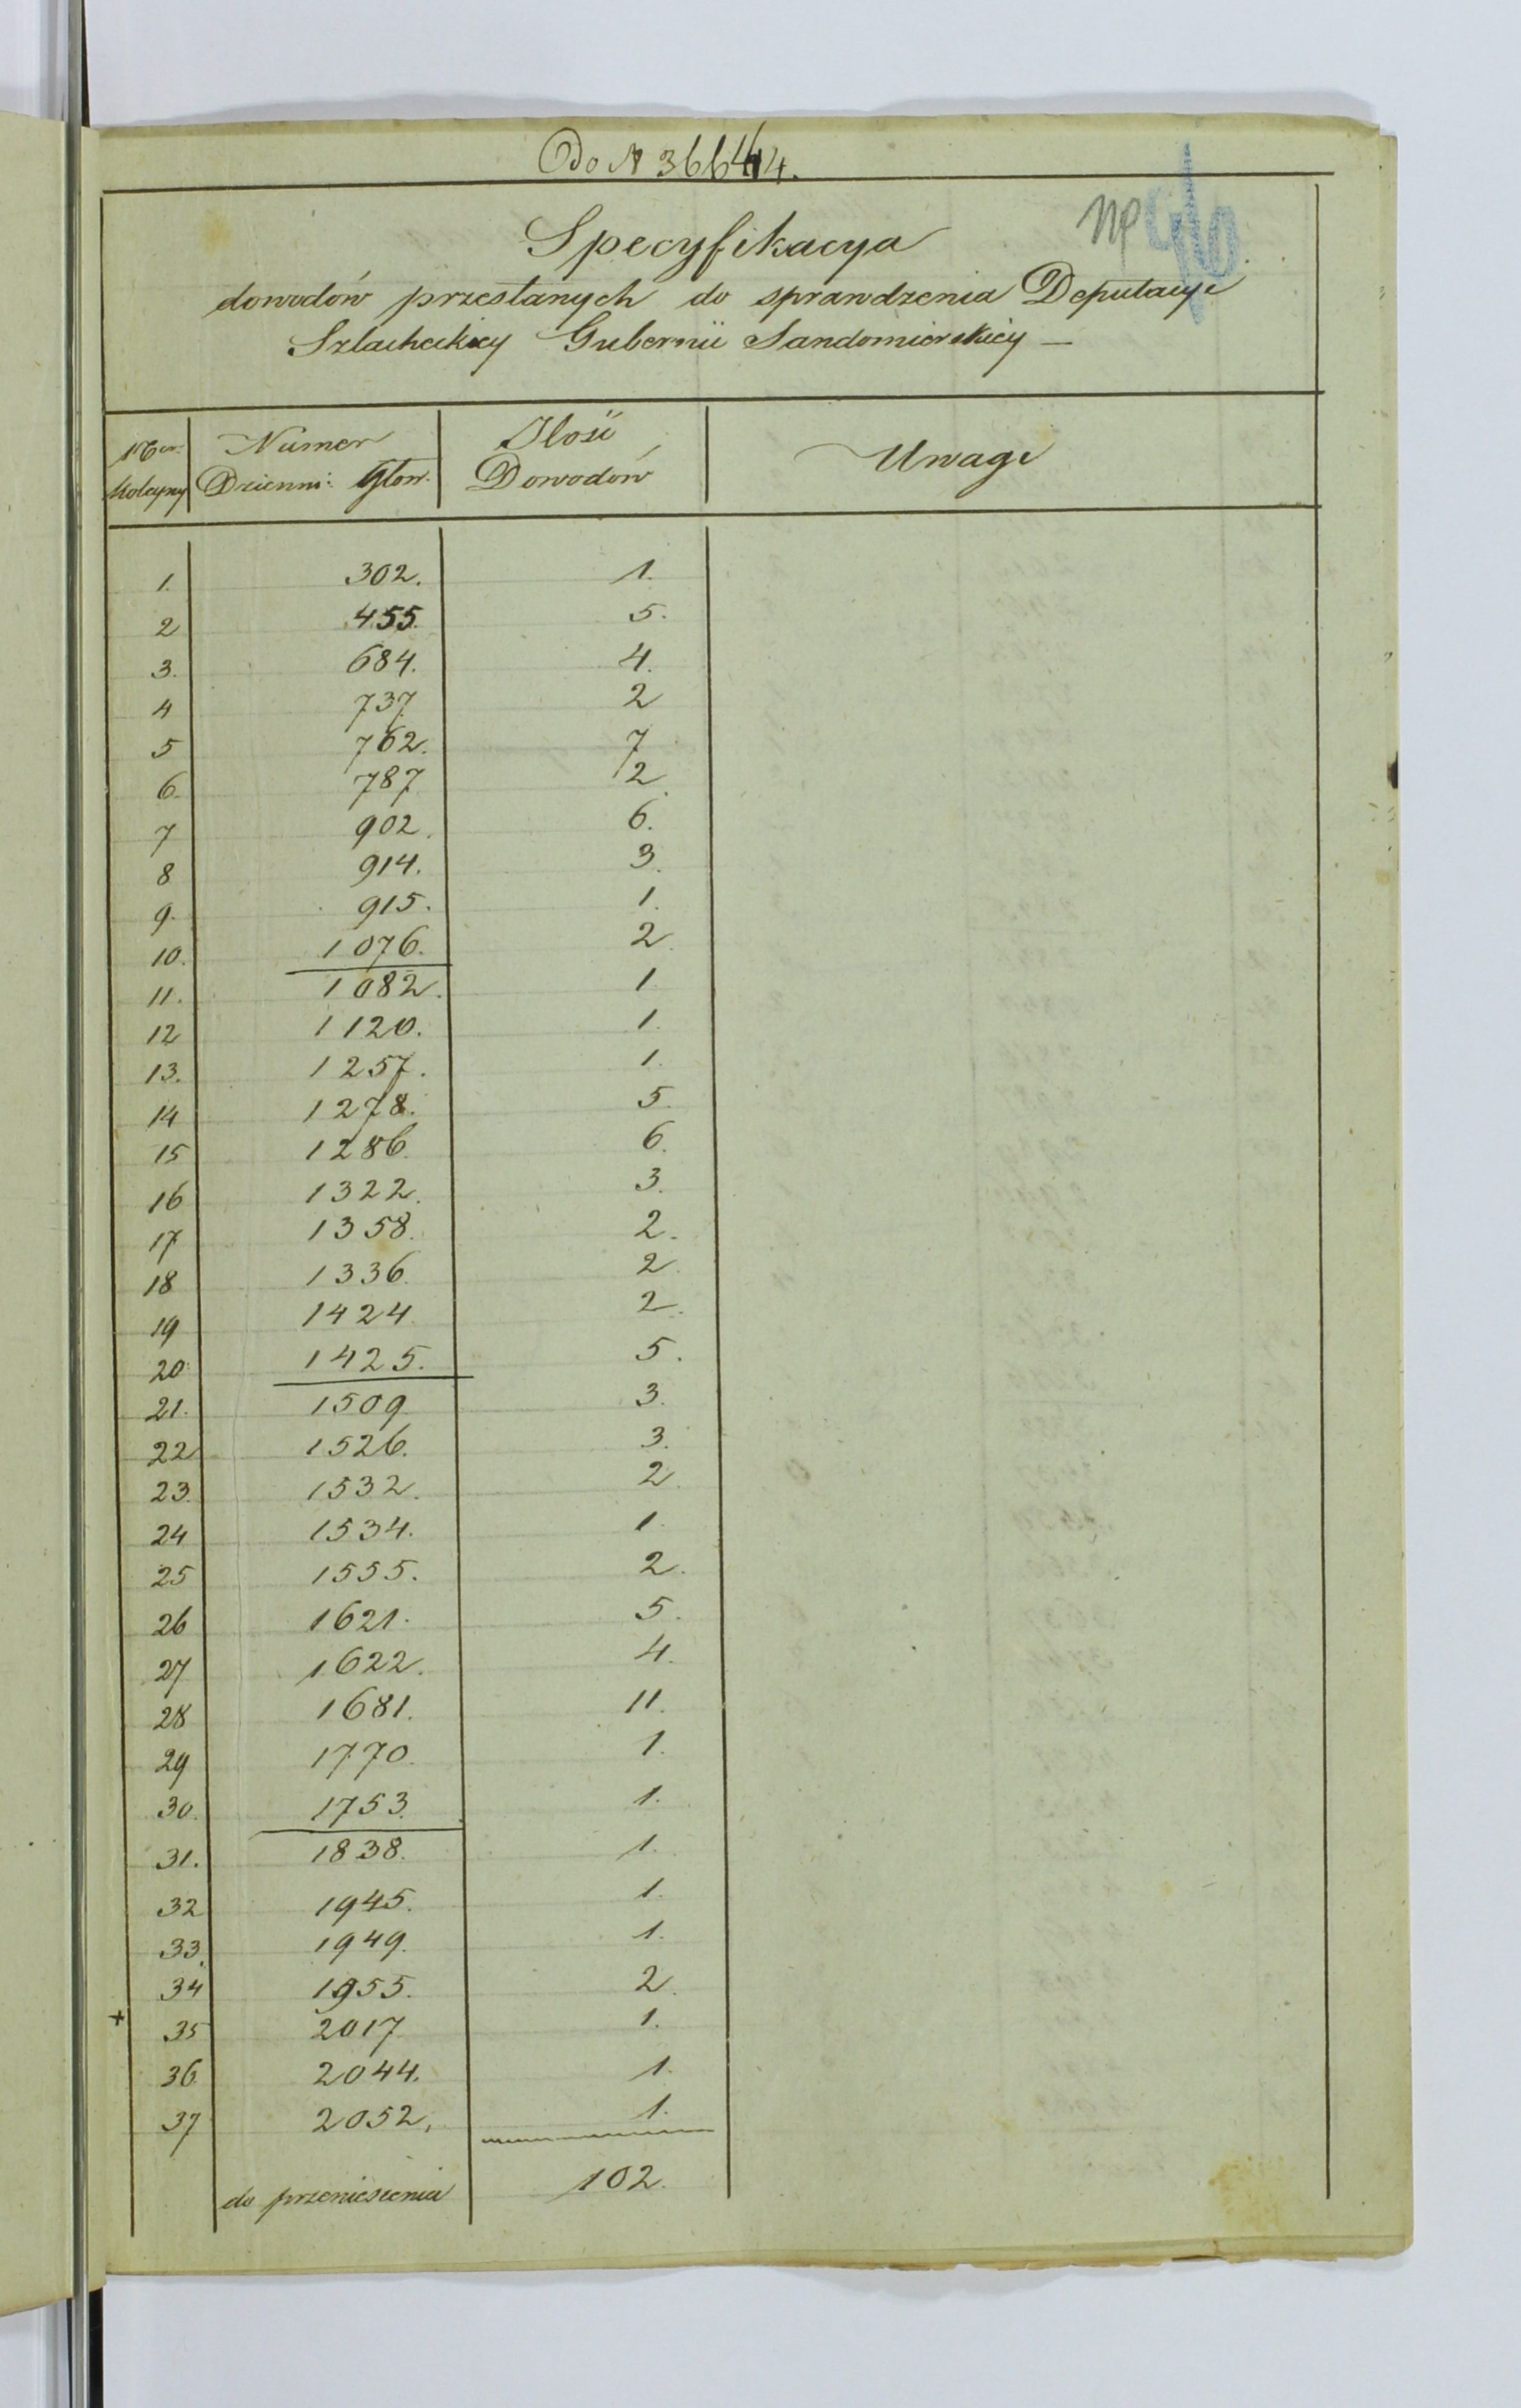 Do N 36644.
Specyfikacya
dowodów przesłanych do sprawdzenia Deputacyi
Szlacheckiey Gubernii Sandomierskiey —
Ner. Numer Ilość Uwagi
kolejny Dzienni: Głow. Dowodów
1. 302. 1.
2 455. 5.
3. 684. 4.
4 737 2
5 762. 7
6. 787 2.
7 902. 6.
8 914. 3.
9. 915. 1.
10. 1076. 2.
11. 1082. 1
12 1120. 1.
13. 1257. 1.
14 1278. 5.
15 1286. 6.
16 1322. 3.
17 1358. 2.
18 1336. 2.
19 1424. 2.
20. 1425. 5.
21. 1509 3.
22 1526. 3.
23. 1532. 2.
24 1534. 1.
25 1555. 2.
26 1621. 5.
27 1622. 4.
28 1681. 11.
29 1770. 1.
30. 1753. 1.
31. 1838. 1.
32 1945. 1.
33. 1949. 1.
34 1955. 2.
+ 35 2017 1.
36. 2044. 1.
37 2052, 1.
do przeniesienia 102.